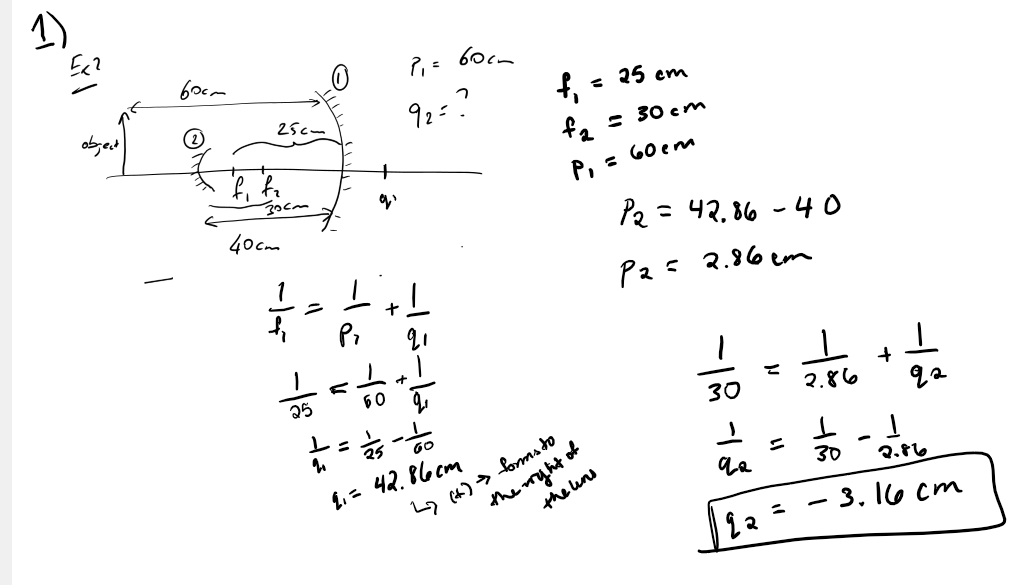 1)
Ex?
60cm
①
P₁ = 60cm
q₂ = ?
object
②
25cm
f₁ f₂
30cm
40cm
q₁
f₁ = 25 cm
f₂ = 30 cm
P₁ = 60 cm
P₂ = 42.86 - 40
P₂ = 2.86 cm
1/f₁ = 1/P₁ + 1/q₁
1/25 = 1/60 + 1/q₁
1/q₁ = 1/25 - 1/60
q₁ = 42.86 cm
↳ (+) → forms to
the right of
the lens
1/30 = 1/2.86 + 1/q₂
1/q₂ = 1/30 - 1/2.86
q₂ = - 3.16 cm